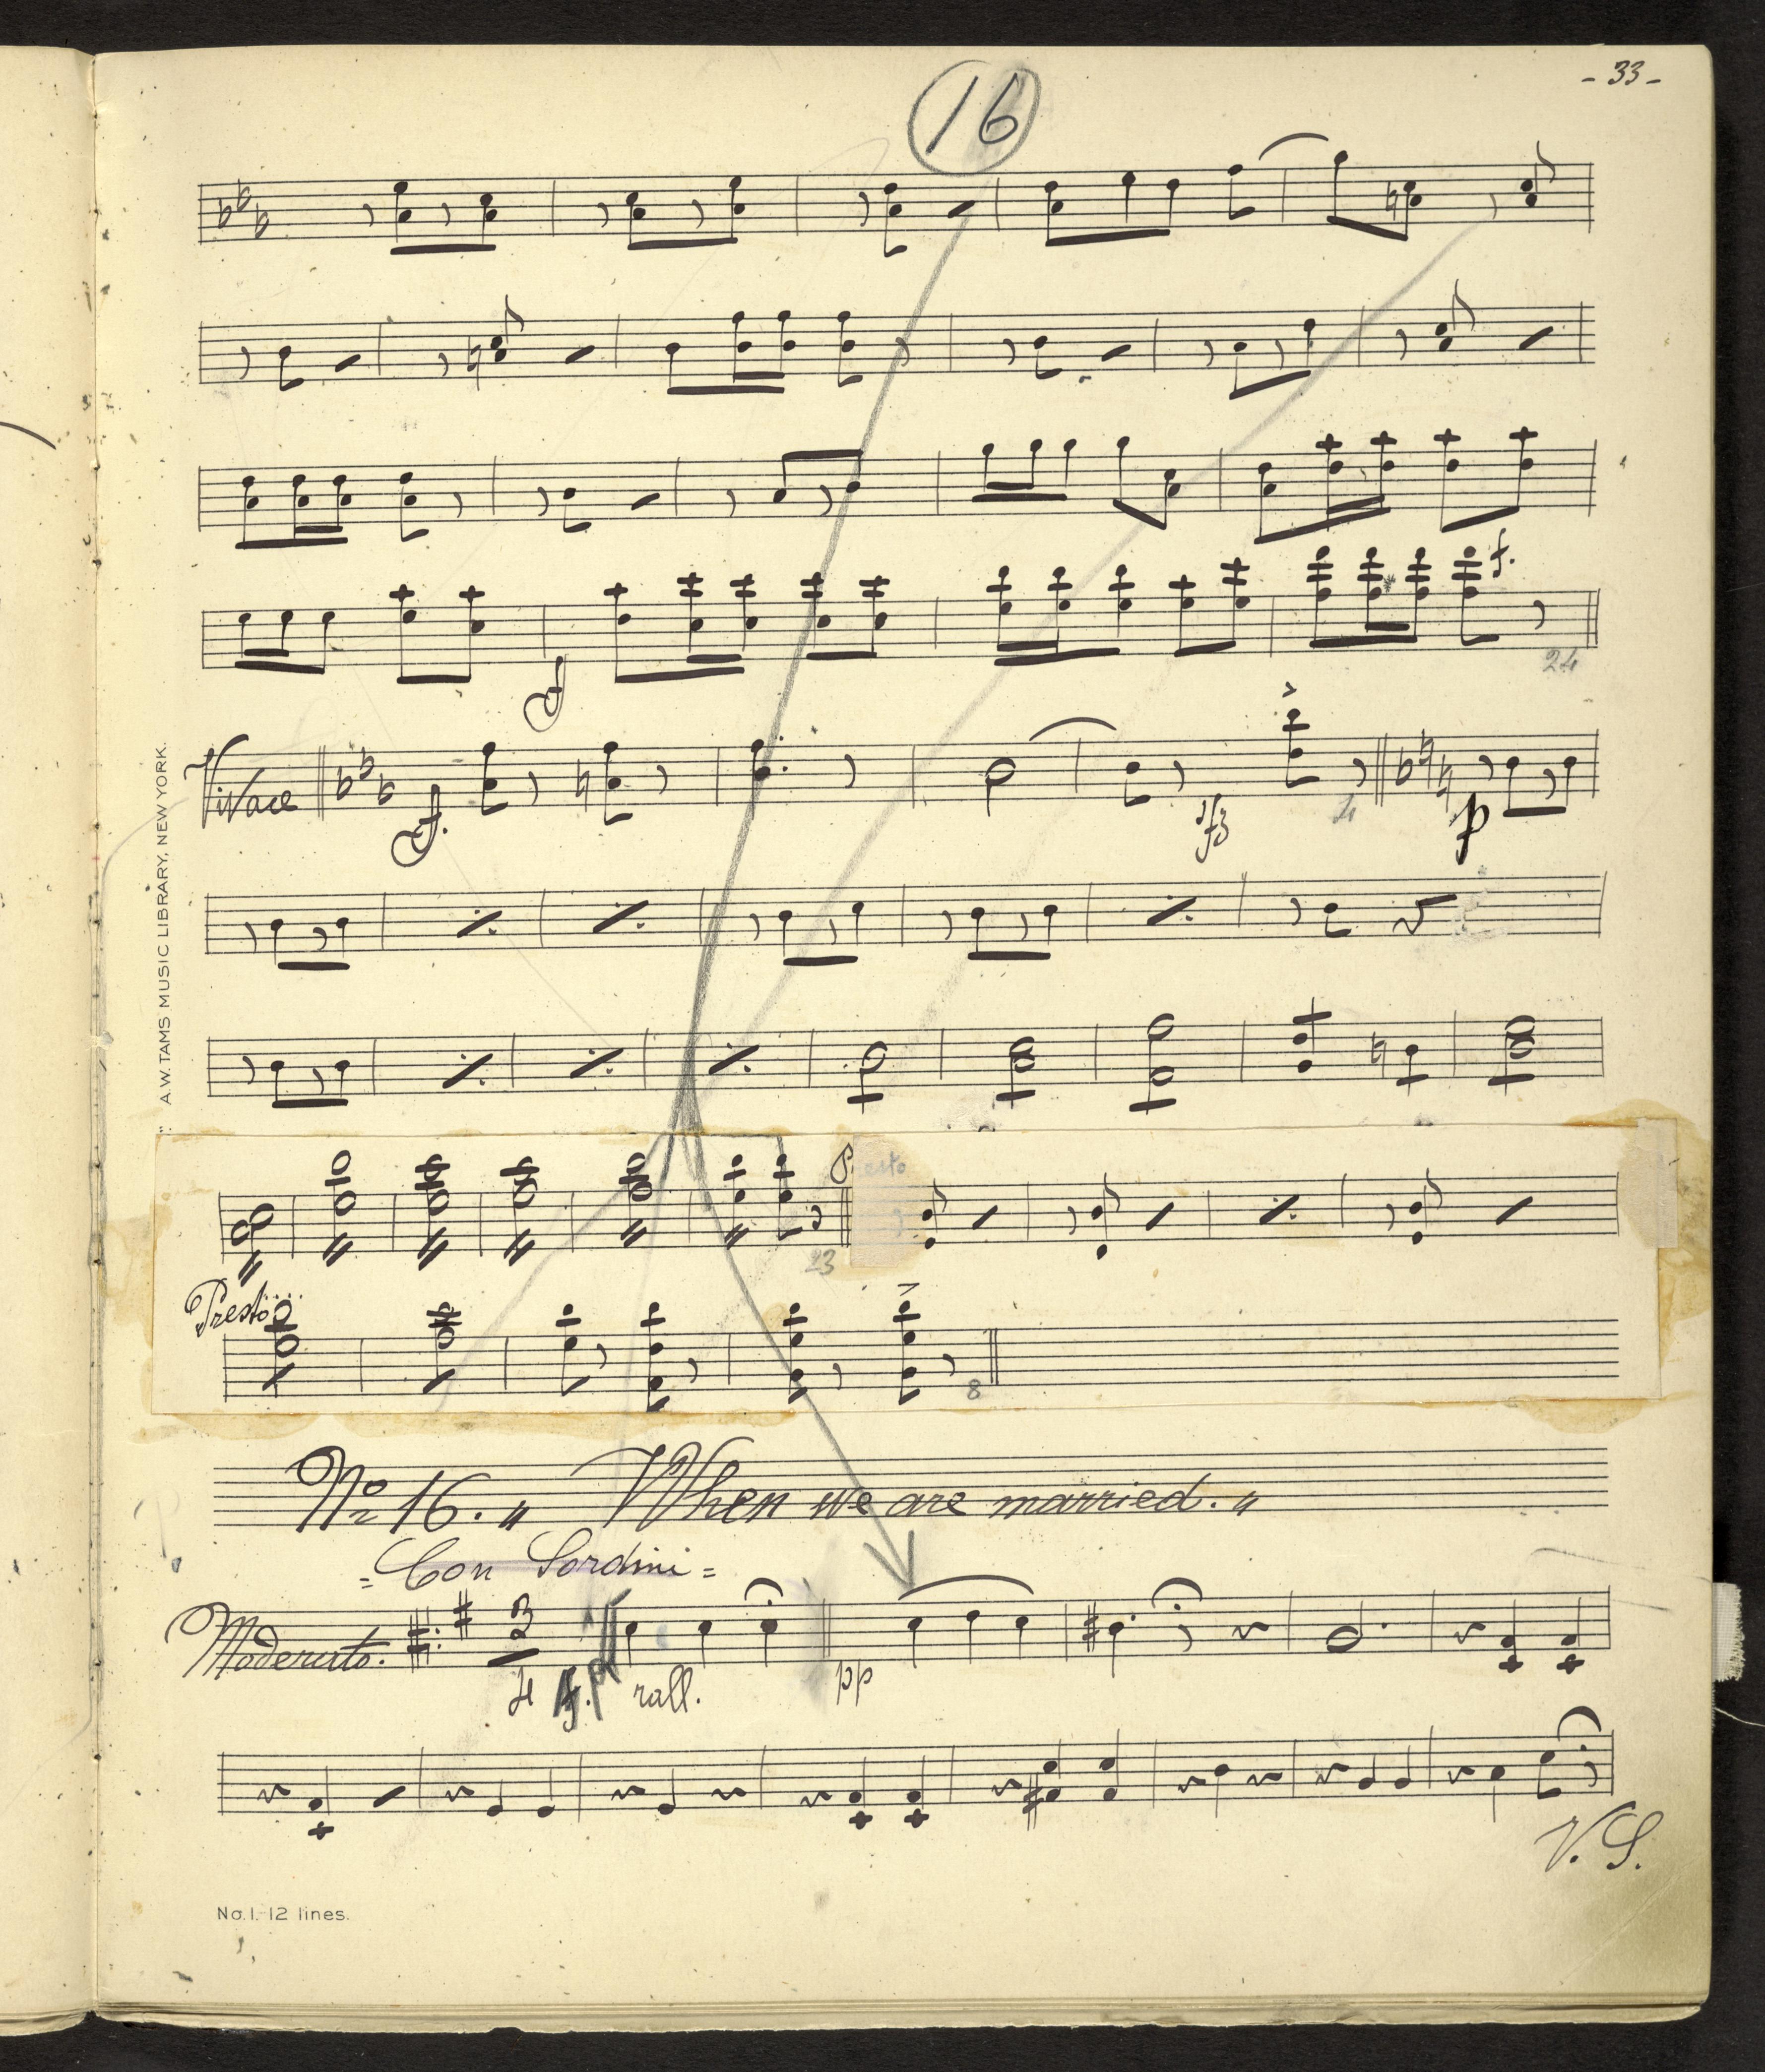 - 33 -
16
f.
f
24
Vivace
f.
sfz
4
p
A.W. TAMS MUSIC LIBRARY, NEW YORK.
Presto
23
Presto
8
No 16. „ When we are married. „
= Con Sordini =
Moderato.
3
4
rall.
pp
V. S.
No. 1.-12 lines.